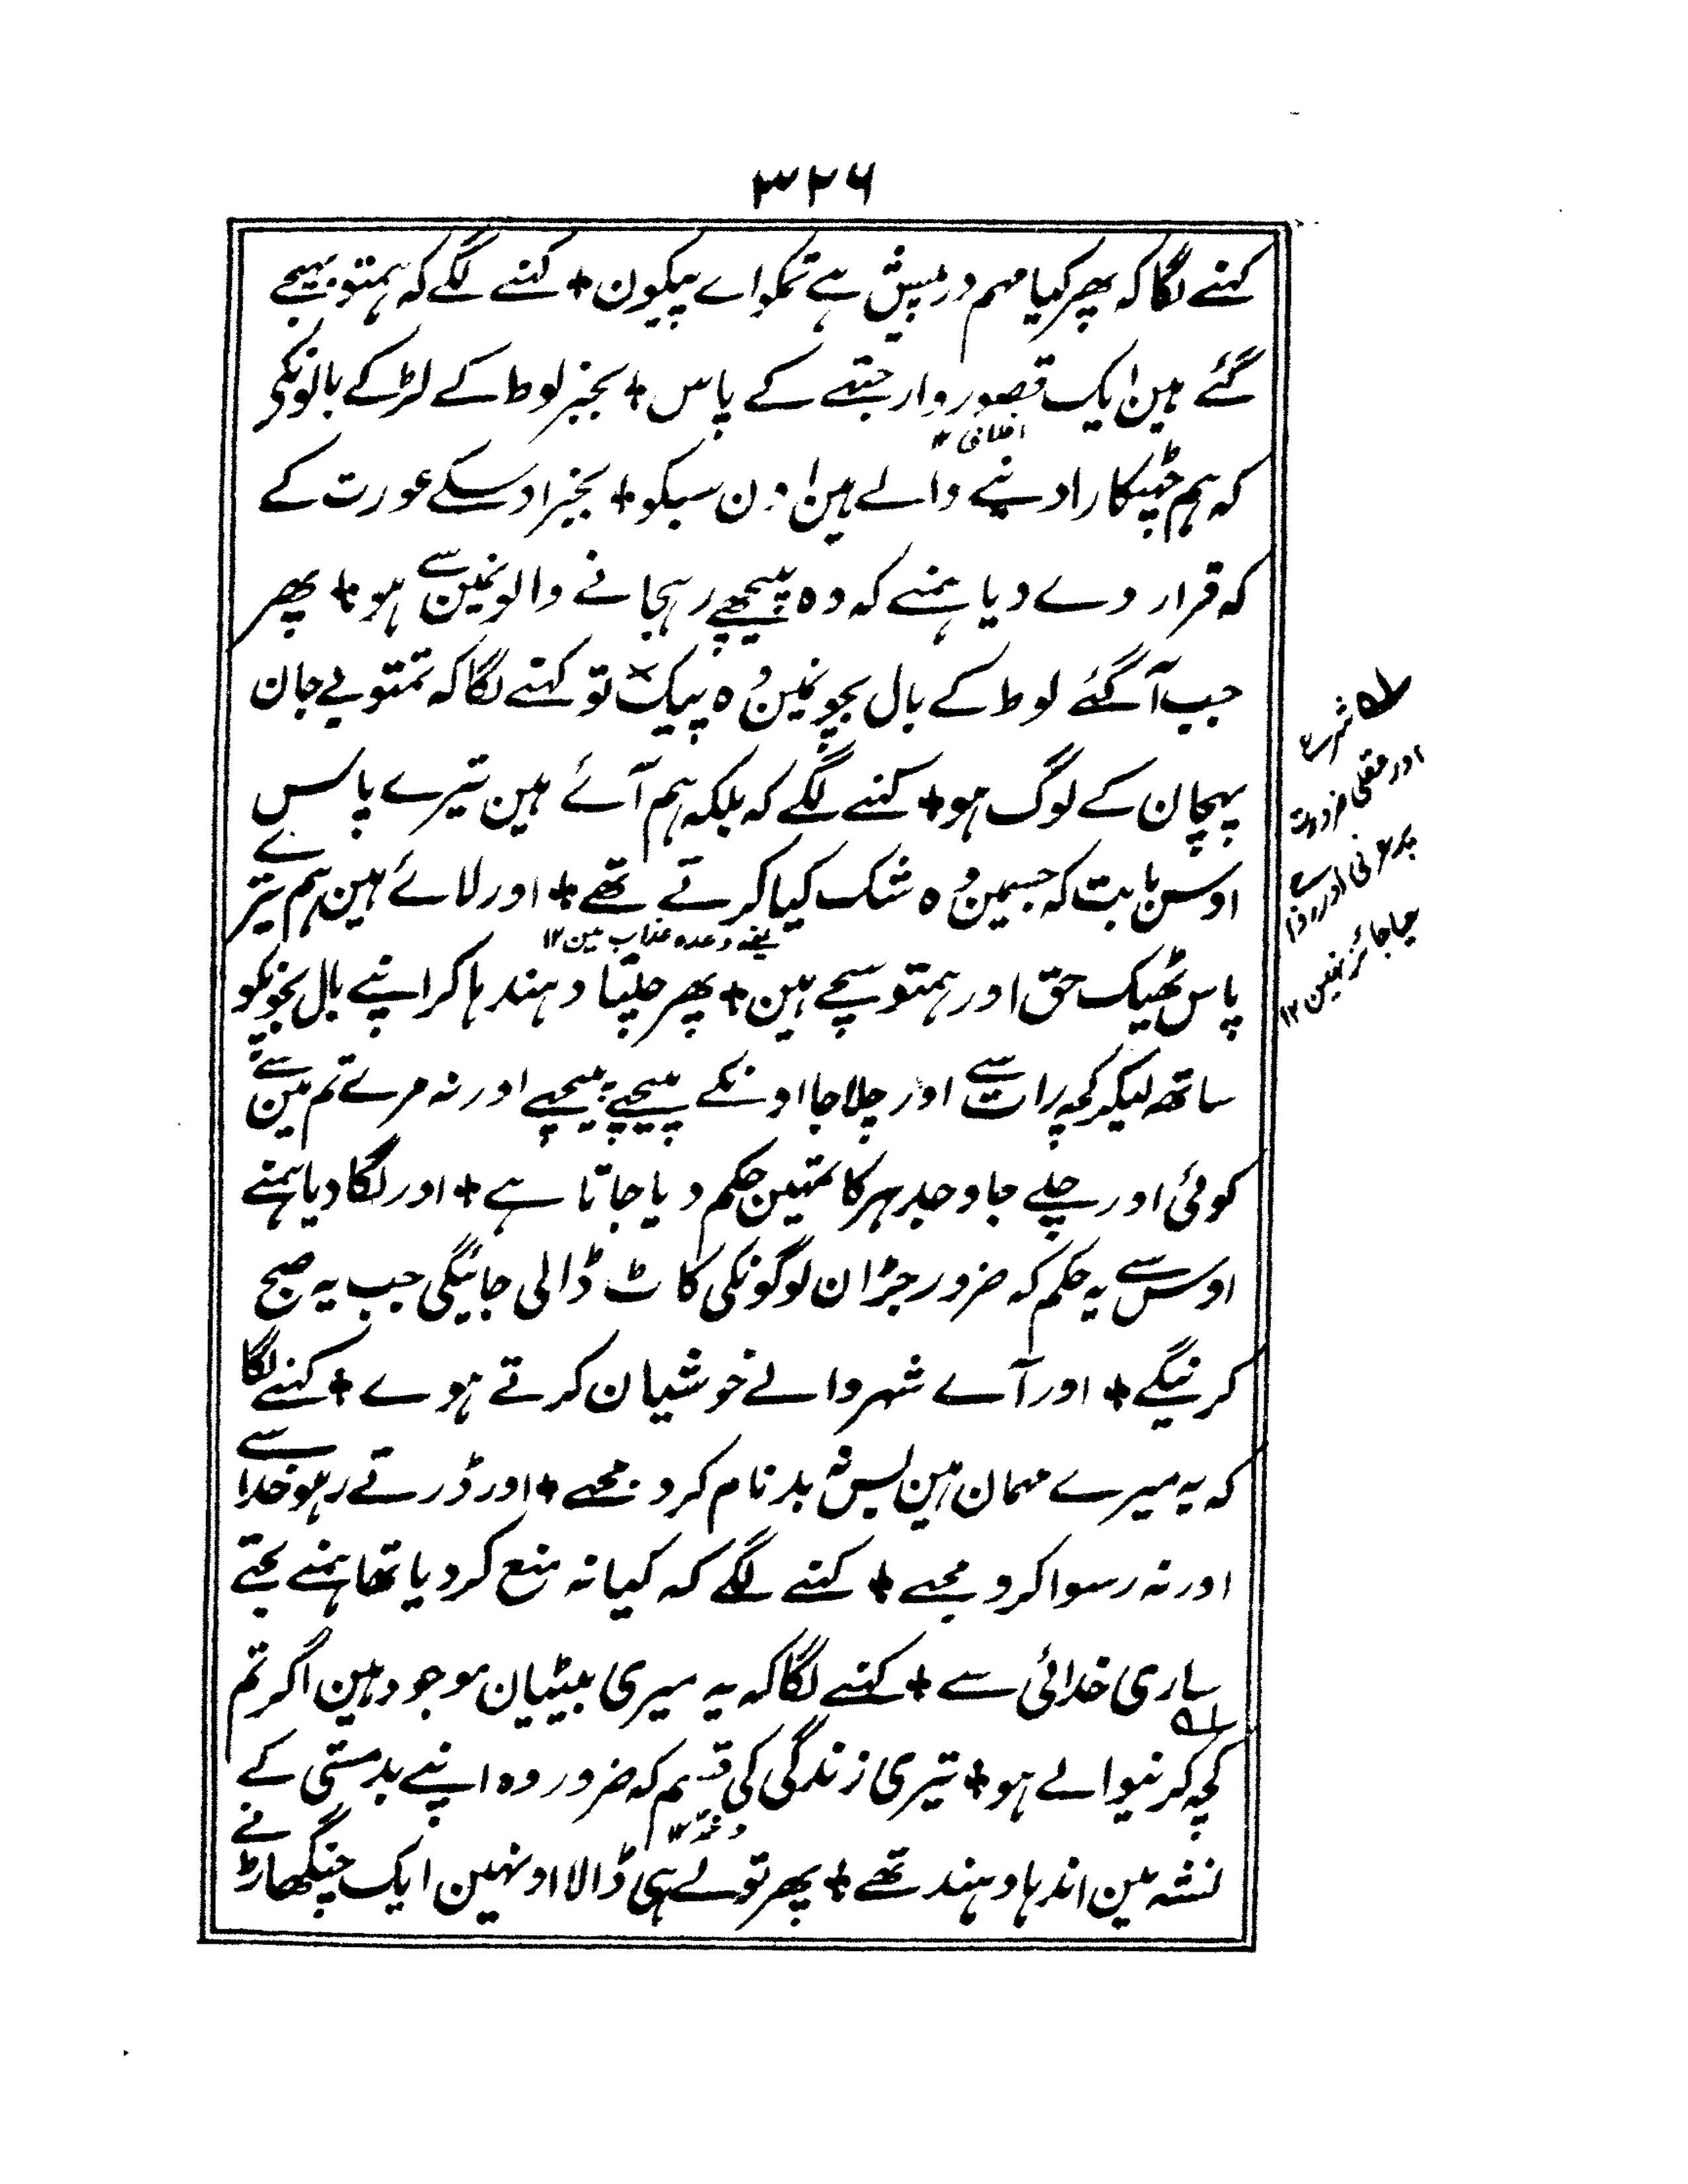 ۳۲۶
کہنے لگا کہ پھر کیا مہم درپیش ہے تمکو اے پیکون + کہنے لگے کہ ہمتو بھیجے
گئے ہین ایک قصوروار جتھے کے پاس + بجز لوط کے لڑکے بالونکی
کہ ہم چھٹکارا دینے والے ہین اون سبکو + بجز اوسکے عورت کے
کہ قرار دے دیا ہمنے کہ وہ پیچھے رہجانے والونمین سے ہو + پھر
جب آگئے لوط کے بال بچونمین وہ پیک تو کہنے لگا کہ تمتو بے جان
پہچان کے لوگ ہو + کہنے لگے کہ بلکہ ہم آئے ہین تیرے پاس
اوس بابت کہ جسمین وہ شک کیا کرتے تھے + اور لائے ہین ہم تیرے
یعنے وعدہ عذاب مین ۱۲
پاس ٹھیک حق اور ہمتو سچے ہین + پھر چلتا دہندہا کر اپنے بال بچونکو
ساتھ لیکر کچھ رات سے اور چلا جا اونکے پیچھے پیچھے اور نہ مرے تم مین سے
کوئی اور چلے جاو جدہر کا تمہین حکم دیا جاتا ہے + اور لگا دیا ہمنے
اوس سے یہ حکم کہ ضرور جڑ ان لوگونکی کاٹ ڈالی جائیگی جب یہ صبح
کرینگے + اور آے شہر والے خوشیان کرتے ہوے + کہنے لگا
کہ یہ میرے مہمان ہین پس نہ بدنام کرو مجھے + اور ڈرتے رہو خدا سے
اور نہ رسوا کرو مجھے + کہنے لگے کہ کیا نہ منع کر دیا تھا ہمنے تجھے
ساری خدائی سے + کہنے لگا کہ یہ میری بیٹیان موجود ہین اگر تم
کچھ کرنیوالے ہو + تیری زندگی کی قسم کہ ضرور وہ اپنے بدمستی کے
نشہ مین اندہا دہند تھے + پھر تو لے ہی ڈالا اونہین ایک چنگھاڑ نے
اور عقلی
جائز نہین ۱۲